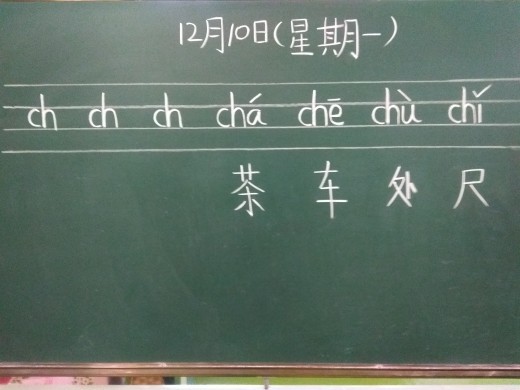 12月10日(星期一)
ch ch ch chá chē chù chǐ
茶 车 处 尺